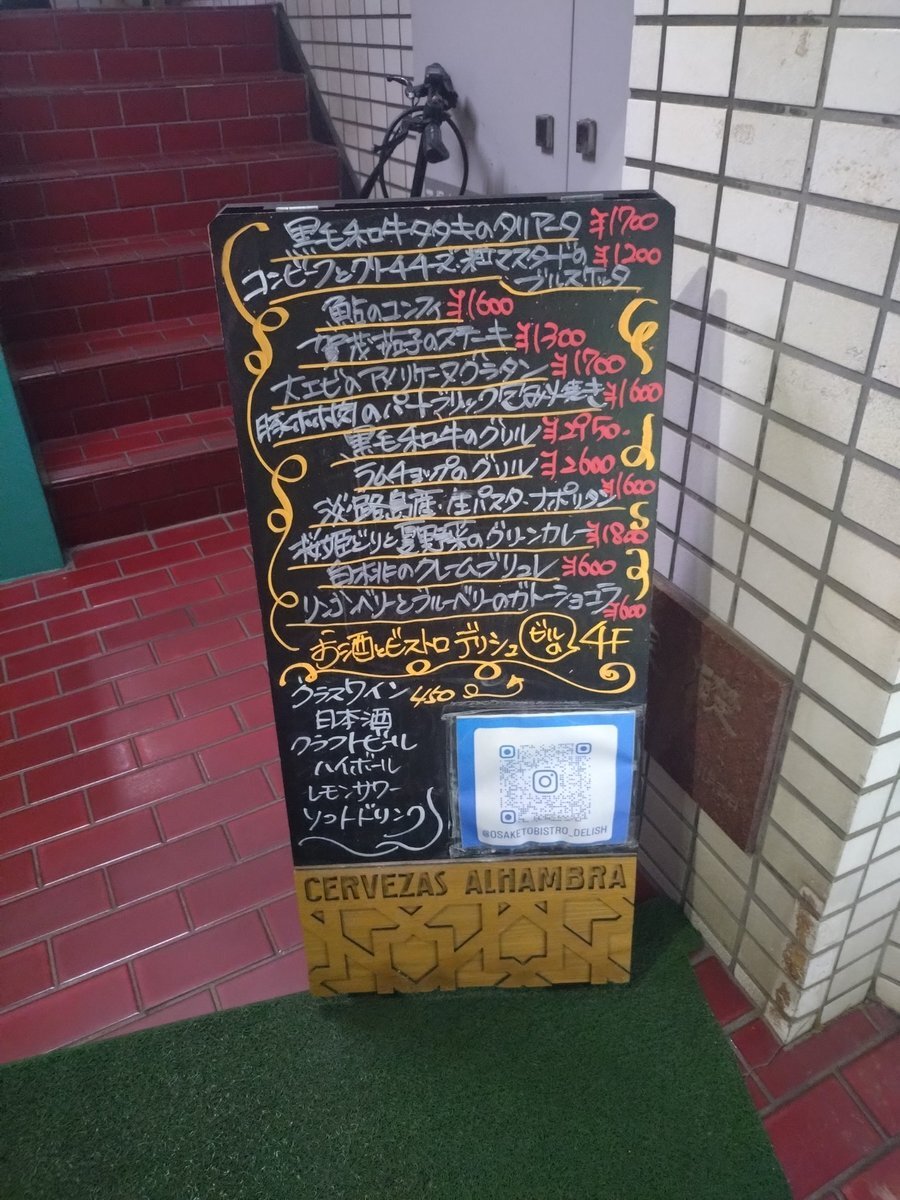 黒毛和牛タタキのタリアータ ¥1700
コンビーフとクリームチーズ・粒マスタードの ¥1200
ブルスケッタ
鮎のコンフィ ¥1600
賀茂茄子のステーキ ¥1300
大エビのアメリケーヌグラタン ¥1700
豚ホホ肉のガーリック包み焼き ¥1600
黒毛和牛のグリル ¥2950-
ラムチョップのグリル ¥2600
淡路島産・生パスタ・ナポリタン ¥1600
桜姫どりと夏野菜のグリーンカレー ¥1800
白桃のクレームブリュレ ¥600
リンゴンベリーとブルーベリーのガトーショコラ ¥600
お酒とビストロ デリシュ ビルの 4F
グラスワイン 450〜
日本酒
クラフトビール
ハイボール
レモンサワー
ソフトドリンク
@OSAKETOBISTRO_DELISH
CERVEZAS ALHAMBRA